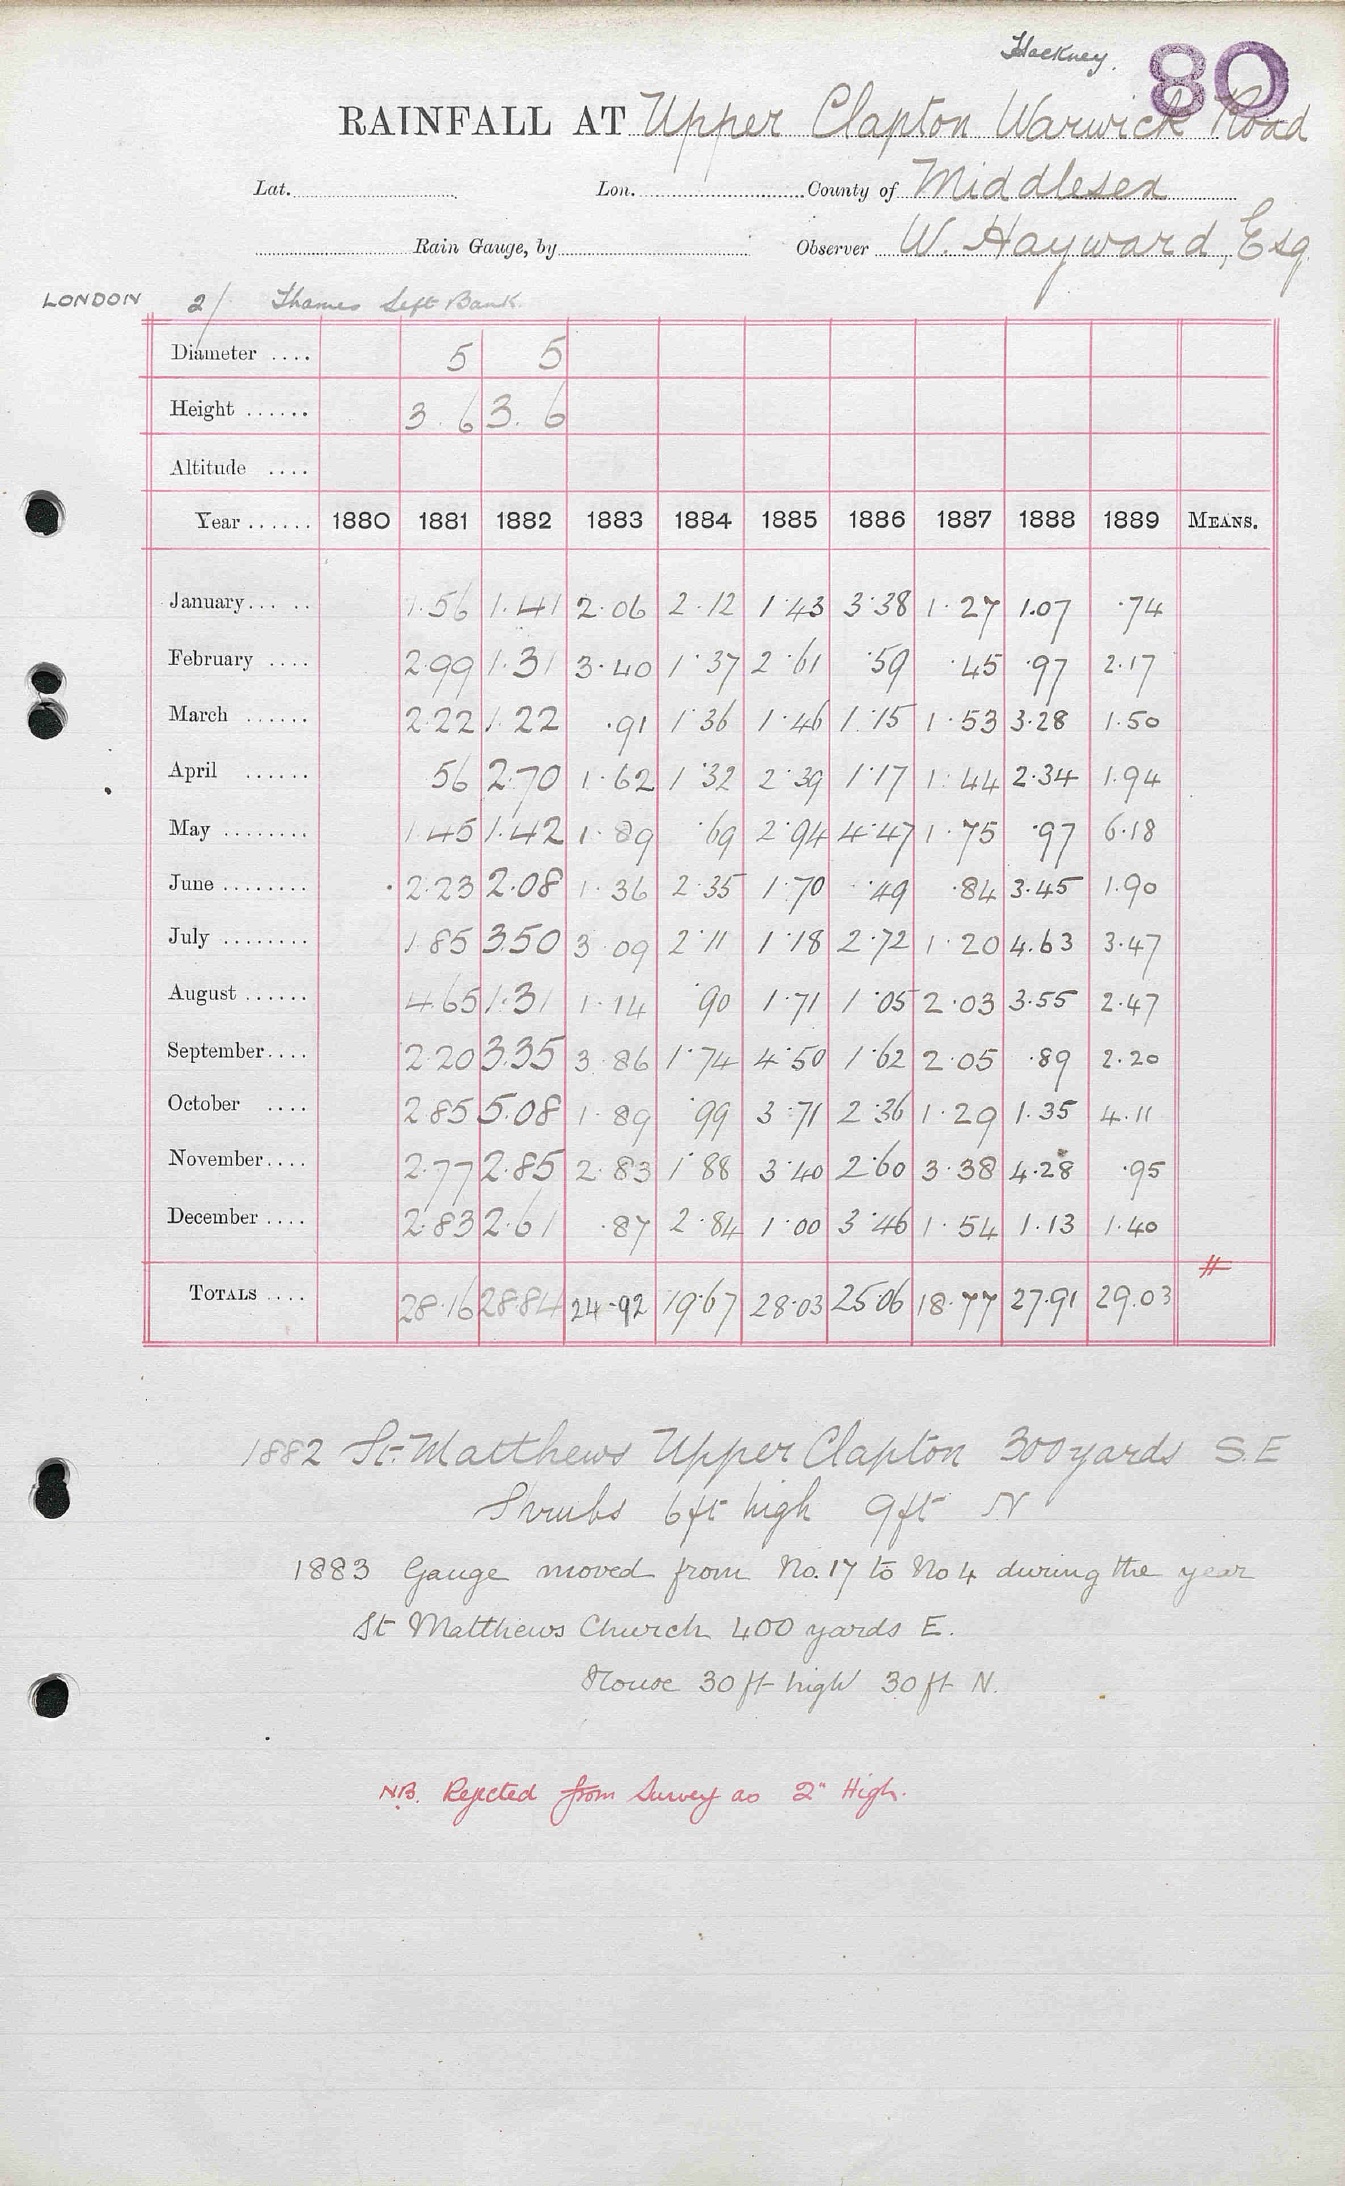 Hackney. 80
RAINFALL AT Upper Clapton Warwick Road
Lat. Lon. County of Middlesex
Rain Gauge, by Observer W. Hayward, Esq
LONDON 2/ Thames Left Bank
Diameter .... 5 5
Height ...... 3. 6 3. 6
Altitude ....
Year ...... 1880 1881 1882 1883 1884 1885 1886 1887 1888 1889 MEANS.
January ... .. 1.56 1.41 2.06 2.12 1.43 3.38 1.27 1.07 .74
February .... 2.99 1.31 3.40 1.37 2.61 .59 .45 .97 2.17
March ...... 2.22 1.22 .91 1.36 1.46 1.15 1.53 3.28 1.50
April ...... 56 2.70 1.62 1.32 2.39 1.17 1.44 2.34 1.94
May ........ 1.45 1.42 1.89 .69 2.94 4.47 1.75 .97 6.18
June ........ 2.23 2.08 1.36 2.35 1.70 .49 .84 3.45 1.90
July ........ 1.85 3.50 3.09 2.11 1.18 2.72 1.20 4.63 3.47
August ...... 4.65 1.31 1.14 .90 1.71 1.05 2.03 3.55 2.47
September.... 2.20 3.35 3.86 1.74 4.50 1.62 2.05 .89 2.20
October .... 2.85 5.08 1.89 .99 3.71 2.36 1.29 1.35 4.11
November.... 2.77 2.85 2.83 1.88 3.40 2.60 3.38 4.28 .95
December .... 2.83 2.61 .87 2.84 1.00 3.46 1.54 1.13 1.40
TOTALS .... 28.16 28.84 24.92 19.67 28.03 25.06 18.77 27.91 29.03
1882 St. Matthews Upper Clapton 300 yards S.E
Shrubs 6 ft high 9 ft N
1883 Gauge moved from No. 17 to No 4 during the year
St Matthews Church 400 yards E.
House 30 ft high 30 ft N.
NB. Rejected from Survey as 2" High.